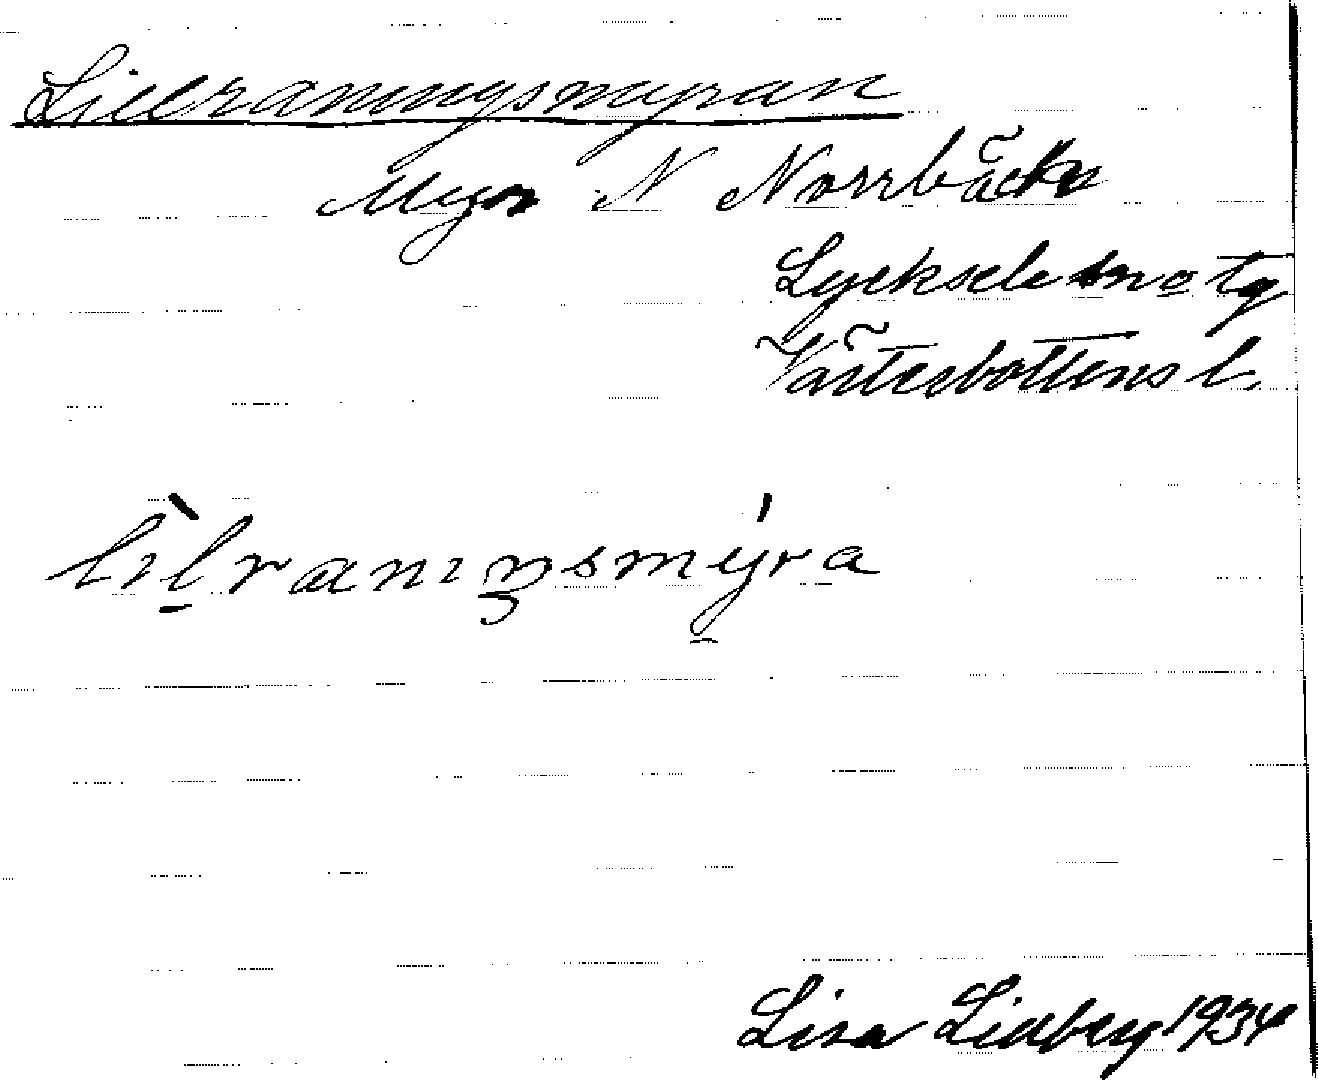 Lillraningsmyran
Myr N Norrbäck
Lycksele sn o tg
Västerbottens l.
lìlranıŋsmýra
Lisa Lidberg 1934